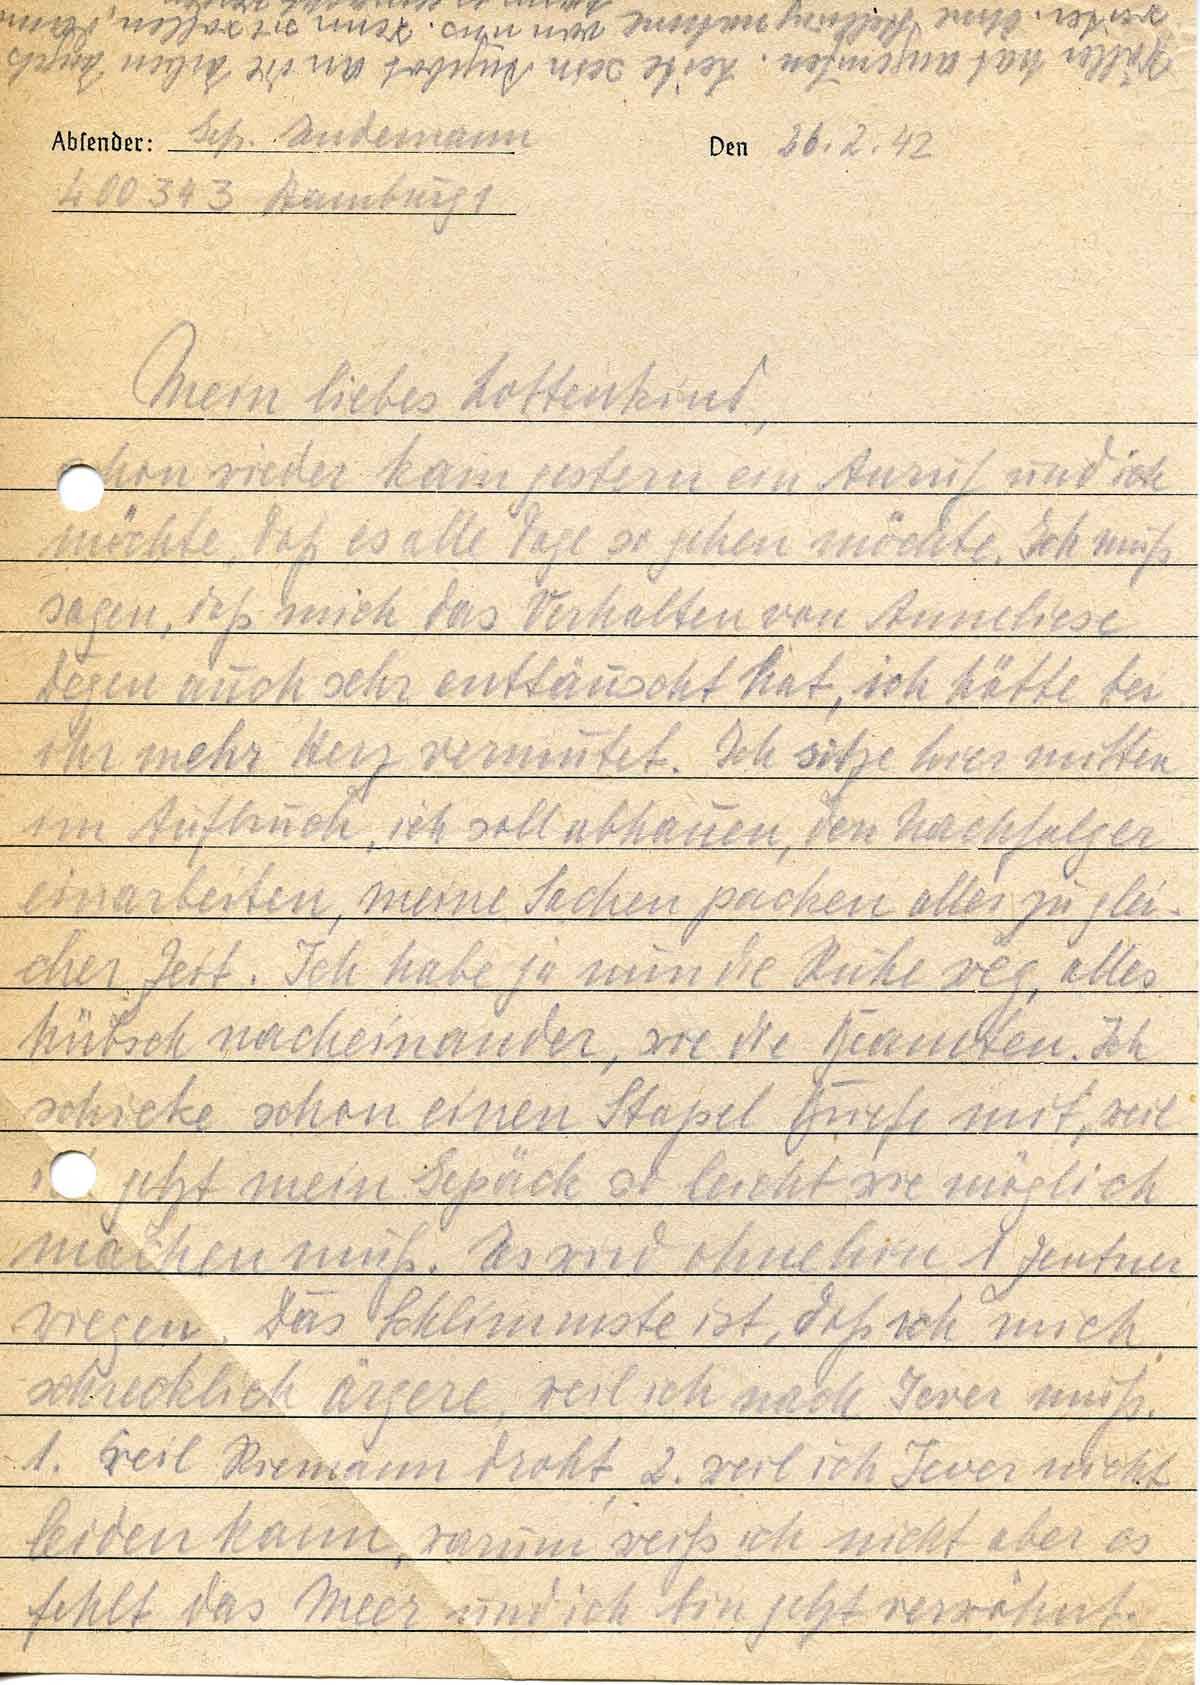 Müller hat angerufen. Leite sein Angebot an die
weiter. Ohne Stellungnahme von uns. Wenn sie wollen,
Absender: Gefr. Lindemann Den 26.2.42
L 00343 Hamburg 1
Mein liebes Lottenkind,
schon wieder kam gestern ein Anruf und ich
möchte, daß es alle Tage so gehen möchte. Ich muß
sagen, daß mich das Verhalten von Anneliese
Degen auch sehr enttäuscht hat, ich hätte bei
ihr mehr Herz vermutet. Ich sitze hier mitten
im Aufbruch, ich soll abhauen, den Nachfolger
einarbeiten, meine Sachen packen alles zu glei-
cher Zeit. Ich habe ja nun die Ruhe weg, alles
hübsch nacheinander, wie die Beamten. Ich
schicke schon einen Stapel Briefe mit, weil
ich jetzt mein Gepäck so leicht wie möglich
machen muß. Es wird ohnehin 1 Zentner
wiegen. Das Schlimmste ist, daß ich mich
schrecklich ärgere, weil ich nach Jever muß.
1. weil Riemann droht, 2. weil ich Jever nicht
leiden kann, warum weiß ich nicht aber es
fehlt das Meer und ich bin jetzt verwöhnt.